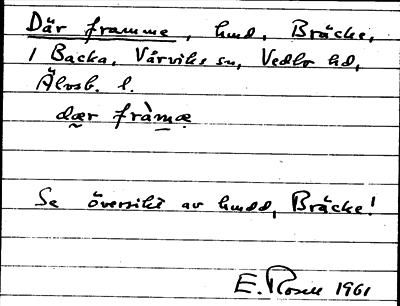 Där framme, hmd, Bräcke,
1 Backa, Vårviks sn, Vedbo hd,
Älvsb. l.
dær fràmæ
Se översikt av hmdd, Bräcke!
E. Rosell 1961